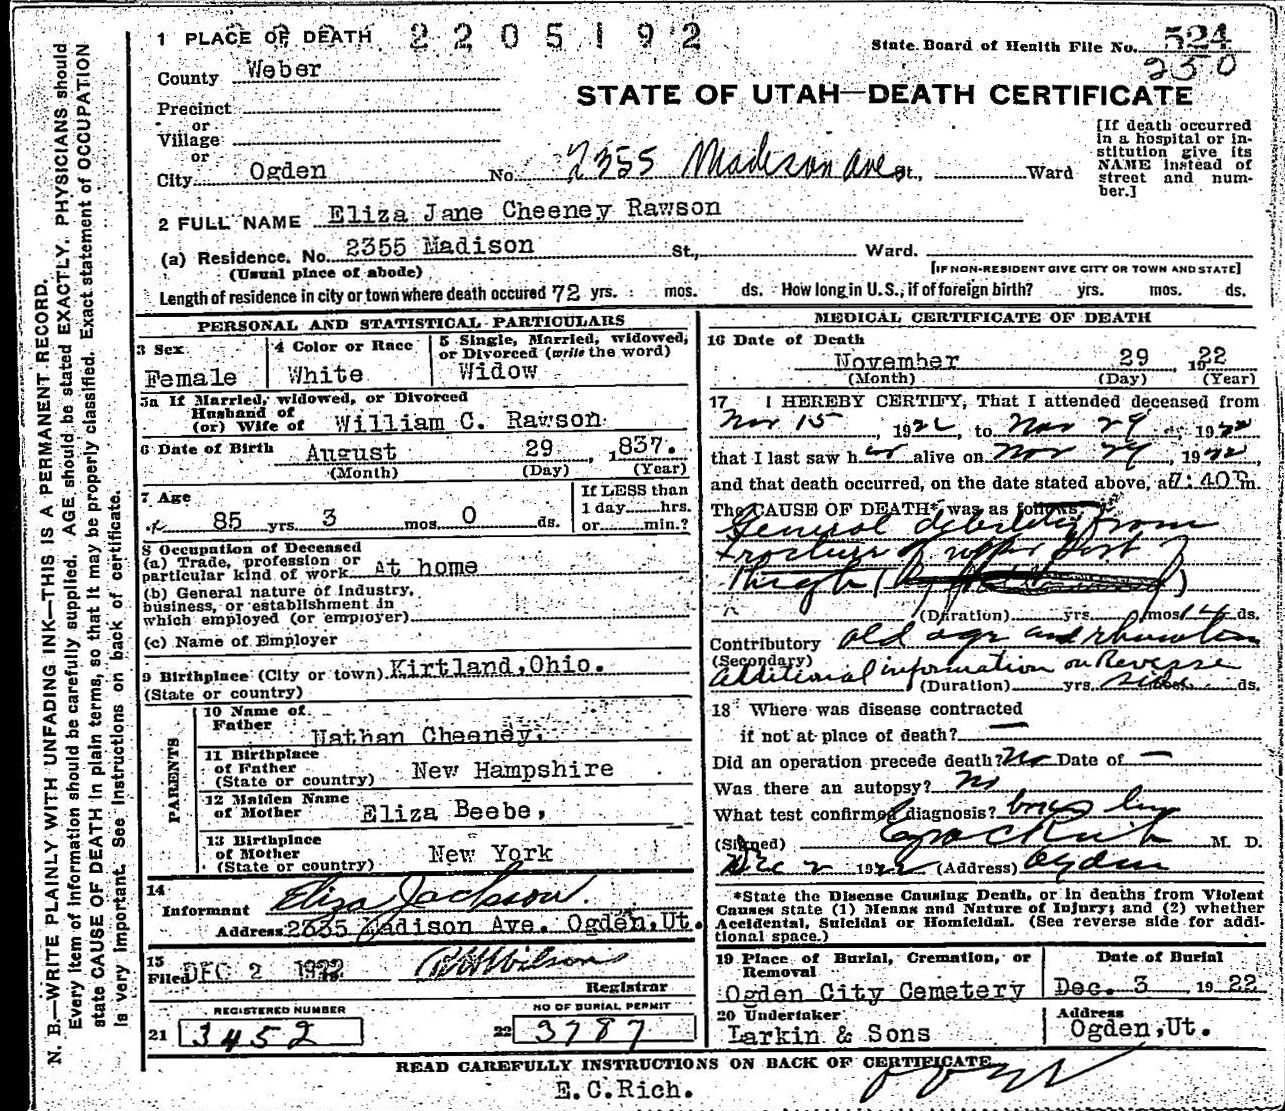 1 PLACE OF DEATH 2205192
State Board of Health File No. 524
230
County Weber
STATE OF UTAH—DEATH CERTIFICATE
Precinct
or
Village
or
City Ogden No. 2355 Madison Ave St., Ward
[If death occurred in a hospital or institution give its NAME instead of street and number.]
2 FULL NAME Eliza Jane Cheeney Rawson
(a) Residence. No. 2355 Madison St., Ward.
(Usual place of abode) [IF NON-RESIDENT GIVE CITY OR TOWN AND STATE]
Length of residence in city or town where death occured 72 yrs. mos. ds. How long in U.S., if of foreign birth? yrs. mos. ds.
PERSONAL AND STATISTICAL PARTICULARS
3 Sex
Female
4 Color or Race
White
5 Single, Married, widowed, or Divorced (write the word)
Widow
5a If Married, widowed, or Divorced
Husband of
(or) Wife of William C. Rawson
6 Date of Birth August 29, 1837.
(Month) (Day) (Year)
7 Age
85 yrs. 3 mos. 0 ds.
If LESS than
1 day hrs.
or min.?
8 Occupation of Deceased
(a) Trade, profession or
particular kind of work At home
(b) General nature of Industry,
business, or establishment in
which employed (or employer)
(c) Name of Employer
9 Birthplace (City or town) Kirtland, Ohio.
(State or country)
PARENTS
10 Name of
Father Nathan Cheeney.
11 Birthplace
of Father
(State or country) New Hampshire
12 Maiden Name
of Mother Eliza Beebe,
13 Birthplace
of Mother
(State or country) New York
14
Informant Eliza Jackson
Address 2335 Madison Ave. Ogden, Ut.
15
Filed DEC 2 1922 Wilson
Registrar
REGISTERED NUMBER
21 3452
NO OF BURIAL PERMIT
22 3787
MEDICAL CERTIFICATE OF DEATH
16 Date of Death
November 29, 1922
(Month) (Day) (Year)
17 I HEREBY CERTIFY, That I attended deceased from
Nov 15, 1922, to Nov 29, 1922
that I last saw her alive on Nov 29, 1922,
and that death occurred, on the date stated above, at 7:40 P m.
The CAUSE OF DEATH* was as follows:
General debility from
fracture of upper part of
thigh (By
(Duration) yrs. mos. 14 ds.
Contributory old age and rheumatism
(Secondary)
Additional information on Reverse
side
(Duration) yrs. mos. ds.
18 Where was disease contracted
if not at place of death? —
Did an operation precede death? No Date of —
Was there an autopsy? No
What test confirmed diagnosis?
(Signed) Ezra C Rich M. D.
Dec 2 1922 (Address) Ogden
*State the Disease Causing Death, or in deaths from Violent
Causes state (1) Means and Nature of Injury; and (2) whether
Accidental, Suicidal or Homicidal. (See reverse side for addi-
tional space.)
19 Place of Burial, Cremation, or
Removal
Ogden City Cemetery
Date of Burial
Dec. 3 1922
20 Undertaker
Larkin & Sons
Address
Ogden, Ut.
READ CAREFULLY INSTRUCTIONS ON BACK OF CERTIFICATE
E.C.Rich.
N. B.—WRITE PLAINLY WITH UNFADING INK—THIS IS A PERMANENT RECORD.
Every item of information should be carefully supplied. AGE should be stated EXACTLY. PHYSICIANS should
state CAUSE OF DEATH in plain terms, so that it may be properly classified. Exact statement of OCCUPATION
is very important. See instructions on back of certificate.